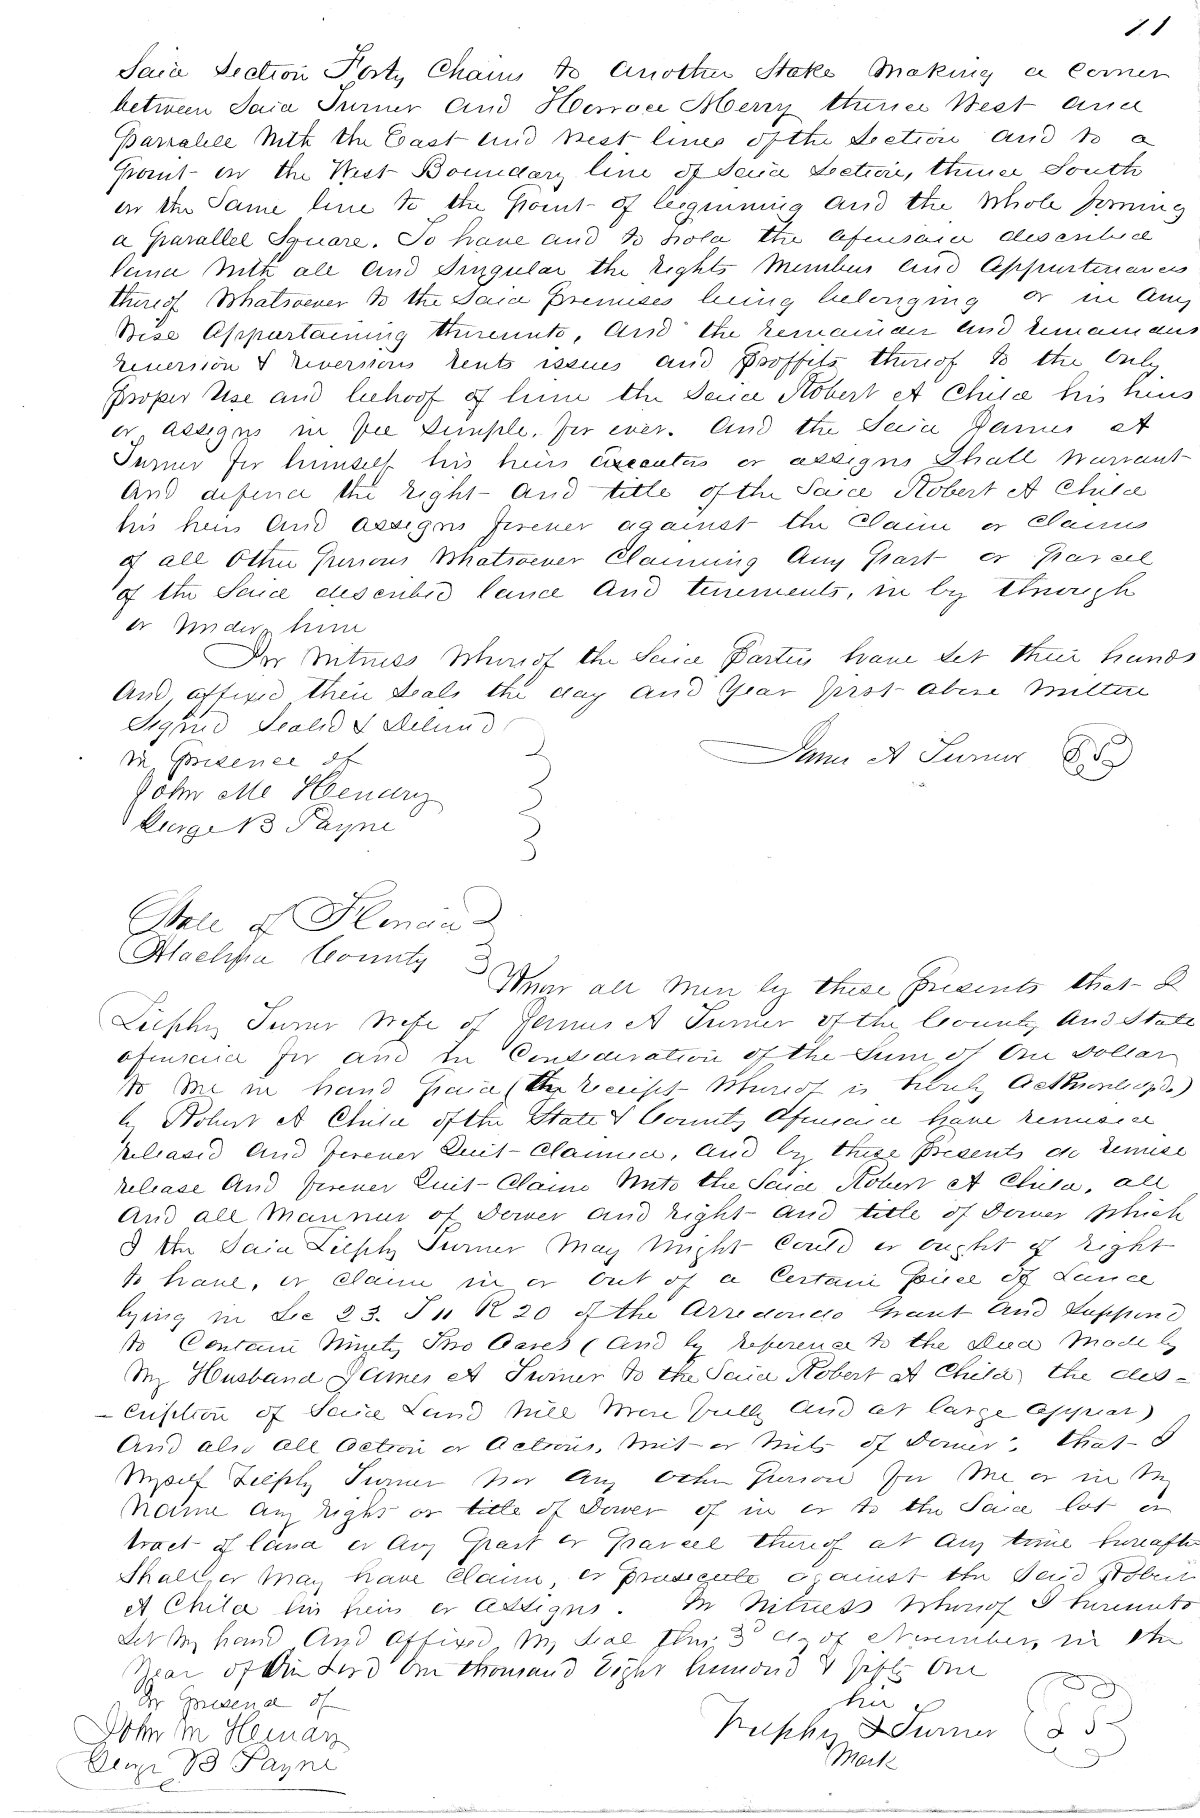 11
Said Section Forty Chains to another Stake Making a Corner
between Said Turner and Horrace Merry thence West and
Parralell With the East and West lines of the Section and to a
Point on the West Boundary line of Said Section, thence South
on the Same line to the Point of beginning and the Whole forming
a Parallel Square. To have and to hold the aforesaid described
land With all and Singular the rights Members and Appurtenances
thereof Whatsoever to the Said Premises being belonging or in any
Wise Appurtaining thereunto, and the remainder and remainders
reversion & reversions rents issues and Proffits thereof to the Only
Proper Use and behoof of him the Said Robert A Child his heirs
or assigns in fee Simple, for ever. And the Said James A
Turner for himself his heirs Executors or assigns Shall Warrant
And defend the right and title of the Said Robert A Child
his heirs and assigns forever against the Claim or Claims
of all Other Persons Whatsoever Claiming Any Part or Parcel
of the Said described land and tenements, in by through
or under him
In Witness Whereof the Said Parties have Set their hands
And affixed their Seals the day and Year first above Written
Signed Sealed & Delivered
in Presence of
James A Turner SS
John Mc Hendry
George B Payne
State of Florida
Alachua County
Know all Men by these Presents that I
Turner Wife of James A Turner of the County And State
aforesaid for and in Consideration of the Sum of One Dollar
to Me in hand Paid (the receipt Whereof is hereby Acknowledged)
by Robert A Child of the State & County Aforesaid have remised
released And forever Quit-Claimed, and by these Presents do remise
release And forever Quit-Claim Unto the Said Robert A Child, all
And all Manner of Dower and right and title of Dower Which
I the Said Turner May Might Could or ought of right
to have, or claim in or out of a Certain Piece of Land
lying in Sec 23. T 11 R 20 of the Arredondo Grant And Supposed
to Contain Ninety Two Acres (and by reference to the Deed Made by
My Husband James A Turner to the Said Robert A Child, the des-
-cription of Said Land Will More fully And at large appear)
And also all Action or Actions, Writ or Writs of Dower, that I
Myself Turner Nor Any other Person for Me or in My
Name any right or title of Dower of in or to the Said lot or
tract of land or Any Part or Parcel thereof at Any time hereafter
Shall or May have Claim, or Prosecute against the Said Robert
A Child his heirs or assigns. In Witness Whereof I hereunto
Set My hand And Affixed My Seal this 3d day of November, in the
Year of Our Lord One thousand Eight hundred & fifty One
In Presence of
John M Hendry
George B Payne
her
Turner SS
Mark